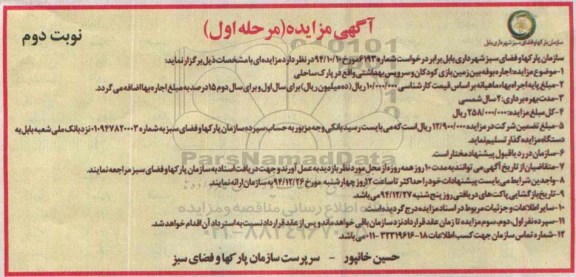 آگهی مزایده(مرحله اول)
نوبت دوم
سازمان پارکها و فضای سبز شهرداری بابل
سازمان پارکها و فضای سبز شهرداری بابل برابر درخواست شماره ۶۱۹۳مورخ ۹۴/۱۰/۱۰ در نظر دارد مزایده‌ای با مشخصات ذیل برگزار نماید:
۱-موضوع مزایده:اجاره بوفه بین زمین بازی کودکان و سرویس بهداشتی واقع در پارک ساحلی
۲-مبلغ پایه اجاره بهاء ماهیانه بر اساس قیمت کارشناسی ۱۰/۰۰۰/۰۰۰ ریال (ده میلیون ریال) برای سال اول و برای سال دوم ۱۵درصد به مبلغ اجاره بها اضافه می گردد.
۳-مدت بهره برداری:۲سال شمسی
۴-کل مبلغ مزایده:۲۵۸/۰۰۰/۰۰۰ ریال
۵-مبلغ تضمین شرکت در مزایده ۱۲/۹۰۰/۰۰۰ ریال است که می بایست رسید بانکی وجه مزبور به حساب سپرده سازمان پارکها و فضای سبز به شماره ۰۱۰۹۴۷۸۲۰۰۰۳ نزد بانک ملی شعبه بابل به دستگاه مزایده گذار تسلیم نماید.
۶-سازمان در رد یا قبول پیشنهاد مختار است.
۷-متقاضیان از تاریخ آگهی می توانند به مدت ۱۰ روز همه روزه از محل مورد نظر بازدید به عمل آورند و جهت دریافت اسناد به سازمان پارکها و فضای سبز مراجعه نمایند.
۸-واجدین شرایط می بایست پیشنهادات خود را حداکثر تا ساعت ۱۲روز چهارشنبه مورخ ۹۴/۱۲/۲۶ به سازمان ارائه نمایند.
۹-تاریخ بازگشایی پاکت های دریافتی روز پنج شنبه ۹۴/۱۲/۲۷ می باشد.
۱۰-سایر اطلاعات و جزئیات مربوط در اسناد مزایده درج گردیده است.
۱۲-سپرده نفر اول،دوم،سوم مزایده تا زمان عقد قرارداد نزد سازمان باقی خواهد ماند و پس از عقد قرارداد نسبت به استرداد آن اقدام خواهد شد.
۱۳-شماره تماس سازمان جهت کسب اطلاعات ۱۸-۳۲۳۱۹۶۱۶-۰۱۱ می باشد.
حسین خانپور - سرپرست سازمان پارکها و فضای سبز
ParsNamadData